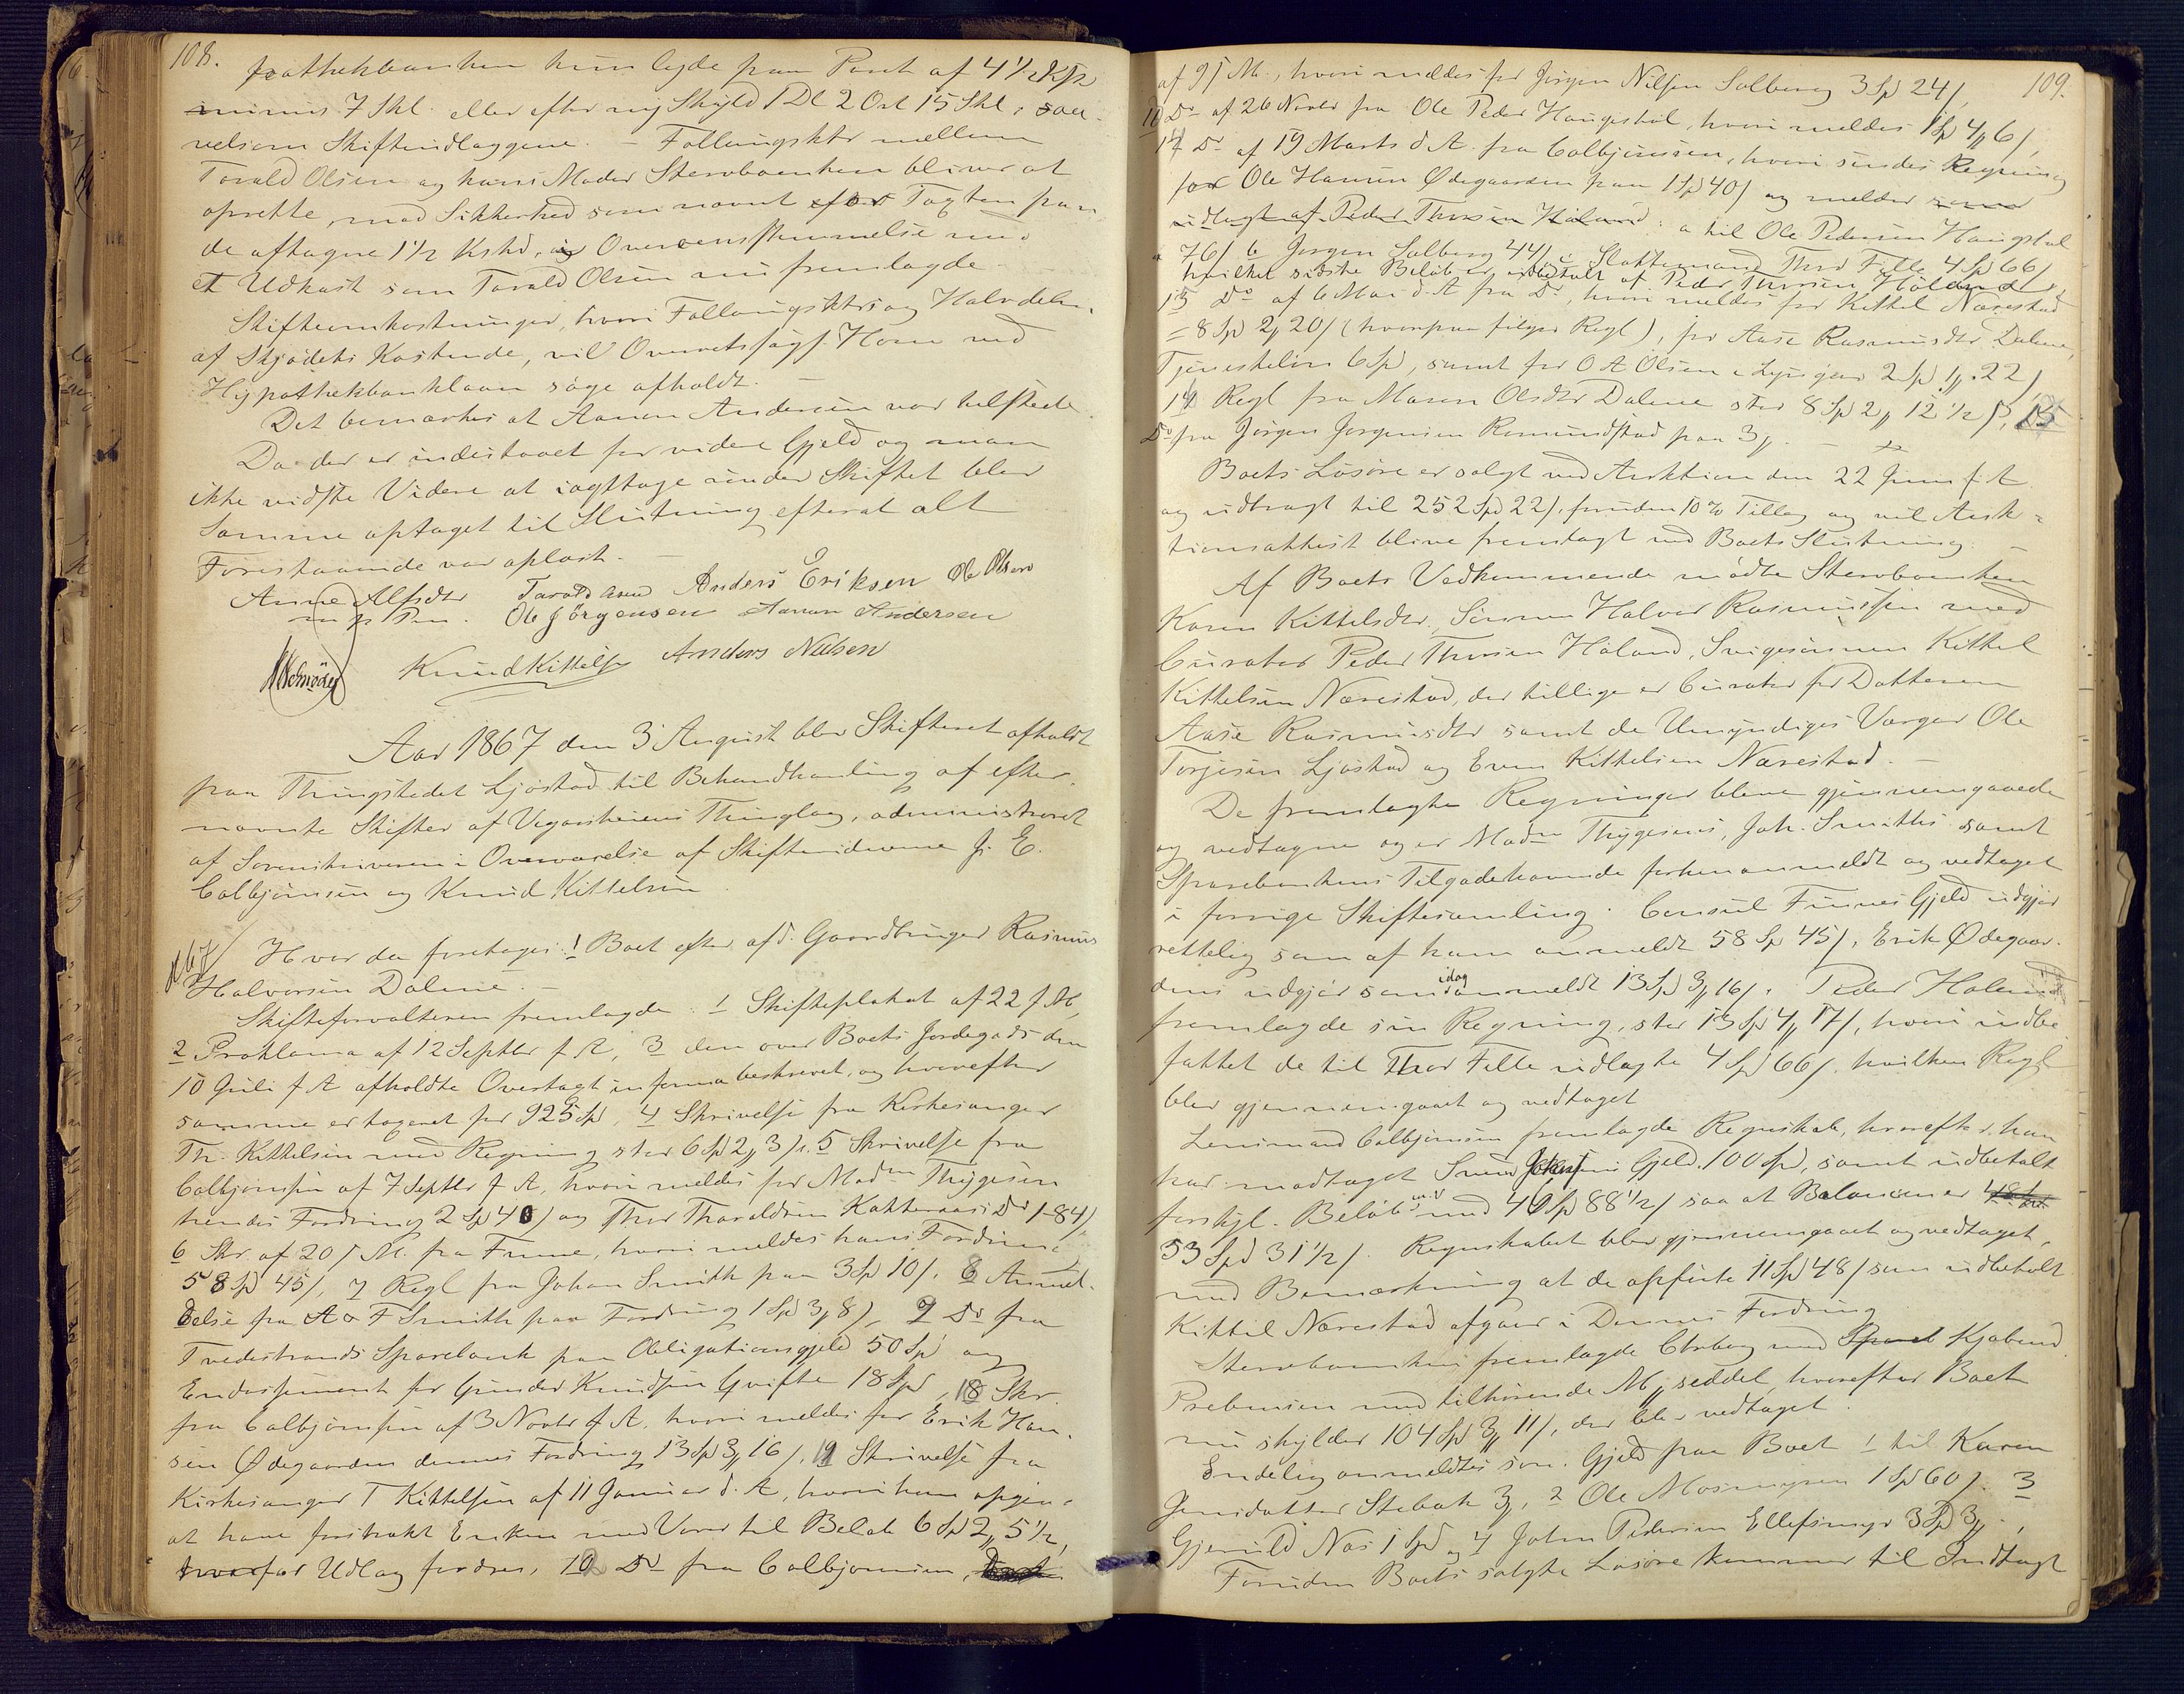 108.
pothekbanken kun lyde paa Part af 4 1/2 Kshd
minus 7 Skl. eller efter ny Skyld 1 Dl 2 Ort 15 Skl: saa-
velsom Skifteudlæggene. — Follaugsktr mellem
Tarald Olsen og hans Moder Stervboenken bliver at
oprette, mod Sikkerhed som nævnt efter Taxten paa
de aftagne 1 1/2 Kshd, i Overeensstemmelse med
et Udkast som Tarald Olsen nu fremlagde.
Skifteomkostninger, hvori Follaugsktrs og Halvdelen
af Skjødets Kostende, vil Overretssagf. Horn ved
Hypothekbanklaan søge afholdt. —
Det bemærkes at Aanon Andersen var tilstede.
Da der er indestaaet for videre Gjeld og man
ikke vidste Videre at iagttage under Skiftet blev
Samme optaget til Slutning efterat alt
Forestaaende var oplæst. —
Anne Alfsdtr Tarald Olsen Anders Eriksen Ole Olsen
m. p. Pen. Ole Jörgensen Aanon Andersen
Knud Kittelsen Anders Nilsen
Aar 1867 den 3 August blev Skifteret afholdt
paa Thingstedet Ljøstad til Behandling af efter-
nævnte Skifter af Vegaarsheiens Thinglag, administreret
af Sorenskriveren i Overværelse af Skiftevidnerne J. E.
Colbjørnsen og Knud Kittelsen
No 7/ Hvor da foretoges: 1 Boet efter afd. Gaardbruger Rasmus
Halvorsen Dalene. —
Skifteforvalteren fremlagde: 1 Skifteplakat af 22 f. M,
2 Proklama af 12 Septbr f A, 3 den over Boets Jordegods den
10 Juli f A afholdte Overtaxt in forma beskrevet, og hvorefter
samme er taxeret for 925 Spd, 4 Skrivelse fra Kirkesanger
Th. Kittelsen med Regning stor 6 Spd 2, 3/, 5 Skrivelse fra
Colbjørnsen af 7 Septbr f A, hvori meldes for Madm Thygesen
hendes Fordring 2 Spd 40/ og Thor Tharaldsen Katteraas Do 1-84/
6 Skr. af 20 f M. fra Finne, hvori meldes hans Fordring
58 Spd 45/, 7 Regl fra Johan Smith paa 3 Spd 10/, 8 Anmel-
delse fra A & F Smith paa Fordring 1 Spd 3, 8/, 9 Do fra
Tvedestrands Sparebank paa Obligationsgjeld 50 Spd og
Endossement for Gunder Knudsen Goifte 18 Spd, 10 Skr
fra Colbjørnsen af 3 Novbr f A. hvori meldes for Erik Han-
sen Ødegaarden dennes Fordring 13 Spd 3, 16/, 11 Skrivelse fra
Kirkesanger T Kittelsen af 11 Januar d. A, hvori han opgiver
at have forstrakt Enken med Varer til Beløb 6 Spd 2, 5 1/2,
hvorfor Udlæg fordres, 12 Do fra Colbjørnsen,
109.
af 9 f M., hvori meldes for Jørgen Nilsen Solberg 3 Spd 24/,
10 Do af 26 Novbr fra Ole Peder Haugestøl, hvori meldes 1 Spd 4, 6/,
12 Do af 19 Marts d. A. fra Colbjørnsen, hvori sendes Regning
for Ole Hansen Ødegaarden paa 1 Spd 40/ og melder som
udlagt af Peder Thorsen Holand: a til Ole Pedersen Haugstøl
76/ b Jørgen Solberg 44/ c Slottemand Thor Felle 4 Spd 66/
hvilket sidste Beløb er udbetalt af Peder Thorsen Høland
13 Do af 6 Mai d. A fra Do, hvori meldes for Kittel Nærestad
= 8 Spd 2, 20/ (hvorpaa følger Regl), for Aase Rasmusdtr Dalene,
Tjenesteløn 6 Spd, samt for O A Olsen i Lyngør 2 Spd 1, 22/,
14 Regl fra Maren Olsdtr Dalene stor 8 Spd 2, 12 1/2/, 15
Do fra Jørgen Jørgensen Romundstad paa 3, —
Boets Løsøre er solgt ved Auktion den 22 Juni f. A
og udbragt til 252 Spd 22/, foruden 10 % Tillæg og vil Auk-
tionsattest blive fremlagt ved Boets Slutning —
Af Boets Vedkommende mødte Stervboenken
Karen Kittelsdtr., Sønnen Halvor Rasmussen med
Curator Peder Thorsen Høland, Svigersønnen Kittel
Kittelsen Nærestad, der tillige er Curator for Datteren
Aase Rasmusdtr samt de Umyndiges Værger Ole
Torjesen Ljøstad og Even Kittelsen Nærestad. —
De fremlagte Regninger bleve gjennemgaaede
og vedtagne og er Madm Thygesens, Joh. Smiths samt
Sparebankens Tilgodehavende forhen anmeldt og vedtaget
i forrige Skiftesamling. Consul Finnes Gjeld udgjør
rettelig som af ham anmeldt 58 Spd 45/, Erik Ødegaar-
dens udgjør som idag anmeldt 13 Spd 3, 16/. Peder Holand
fremlagde sin Regning, stor 13 Spd 4, 17/, hvori indbe-
fattet de til Thor Felle udlagte 4 Spd 66/. hvilken Regl
blev gjennemgaaet og vedtaget
Lensmand Colbjørnsen fremlagde Regnskab, hvorefter han
har modtaget Gjeld 100 Spd, samt udbetalt
forskjl. Beløb med 46 Spd 88 1/2/ saa at Balancen er
53 Spd 31 1/2/. Regnskabet blev gjennemgaaet og vedtaget,
med Bemærkning at de opførte 11 Spd 48/ som udbetalt
Kittil Nærestad afgaar i Dennes Fordring
Stervboenken fremlagde Ctrabog med Kjøbmd
Prebensen med tilhørende Mseddel, hvorefter Boet
nu skylder 104 Spd 3, 11/, der blev vedtaget.
Endelig anmeldtes som Gjeld paa Boet 1 til Karen
Jensdatter Stebak 3, 2 Ole Mosmyren 1 Spd 60/. 3
Gjeruld Næs 1 Spd og 4 John Pedersen Ellefsmyr 3 Spd 3,
Foruden Boets solgte Løsøre kommer til Indtægt